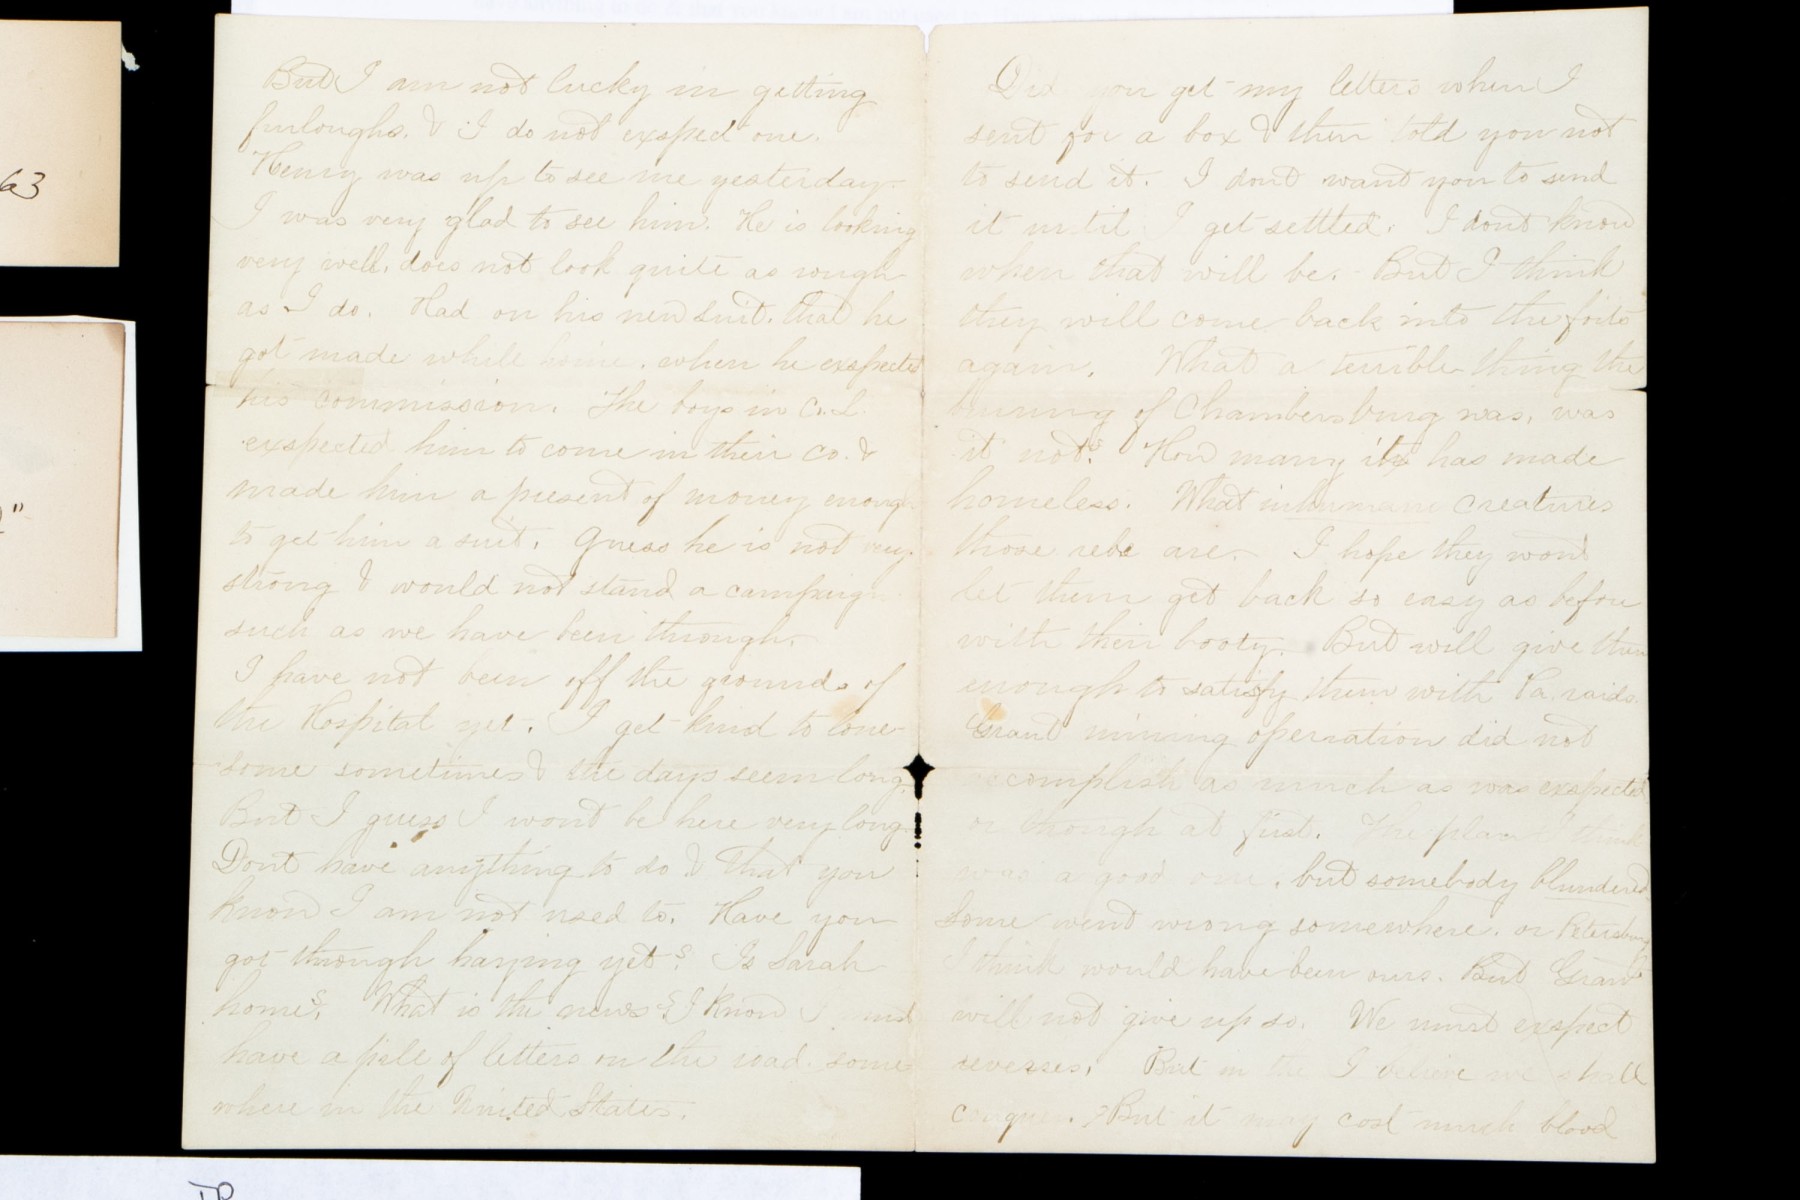 But I am not lucky in getting
furloughs. & I do not exspect one.
Henry was up to see me yesterday.
I was very glad to see him. He is looking
very well. does not look quite as rough
as I do. Had on his new suit. that he
got made while home. when he exspected
his commission. The boys in Co. L.
exspected him to come in their co. &
made him a present of money enough
to get him a suit. Guess he is not very
strong & would not stand a campaign
such as we have been through.
I have not been off the grounds of
the Hospital yet. I get kind to lone-
some sometimes & the days seem long.
But I guess I wont be here very long.
Dont have anything to do & that you
know I am not used to. Have you
got through haying yet? Is Sarah
home? What is the news? I know I must
have a pile of letters on the road some
where in the United States.
Did you get my letters when I
sent for a box & then told you not
to send it. I dont want you to send
it until I get settled. I dont know
when that will be. But I think
they will come back into the forts
again. What a terrible thing the
burning of Chambersburg was, was
it not? How many its has made
homeless. What inhumane creatures
those rebs are. I hope they wont
let them get back so easy as before
with their booty. But will give them
enough to satisfy them with Pa. raids.
Grant mining operation did not
accomplish as much as was exspected
or though at first. The plan I think
was a good one, but somebody blundered.
Some went wrong somewhere. or Petersburg
I think would have been ours. But Grant
will not give up so. We must exspect
reverses. But in the I believe we shall
conquer. But it may cost much blood
63
"